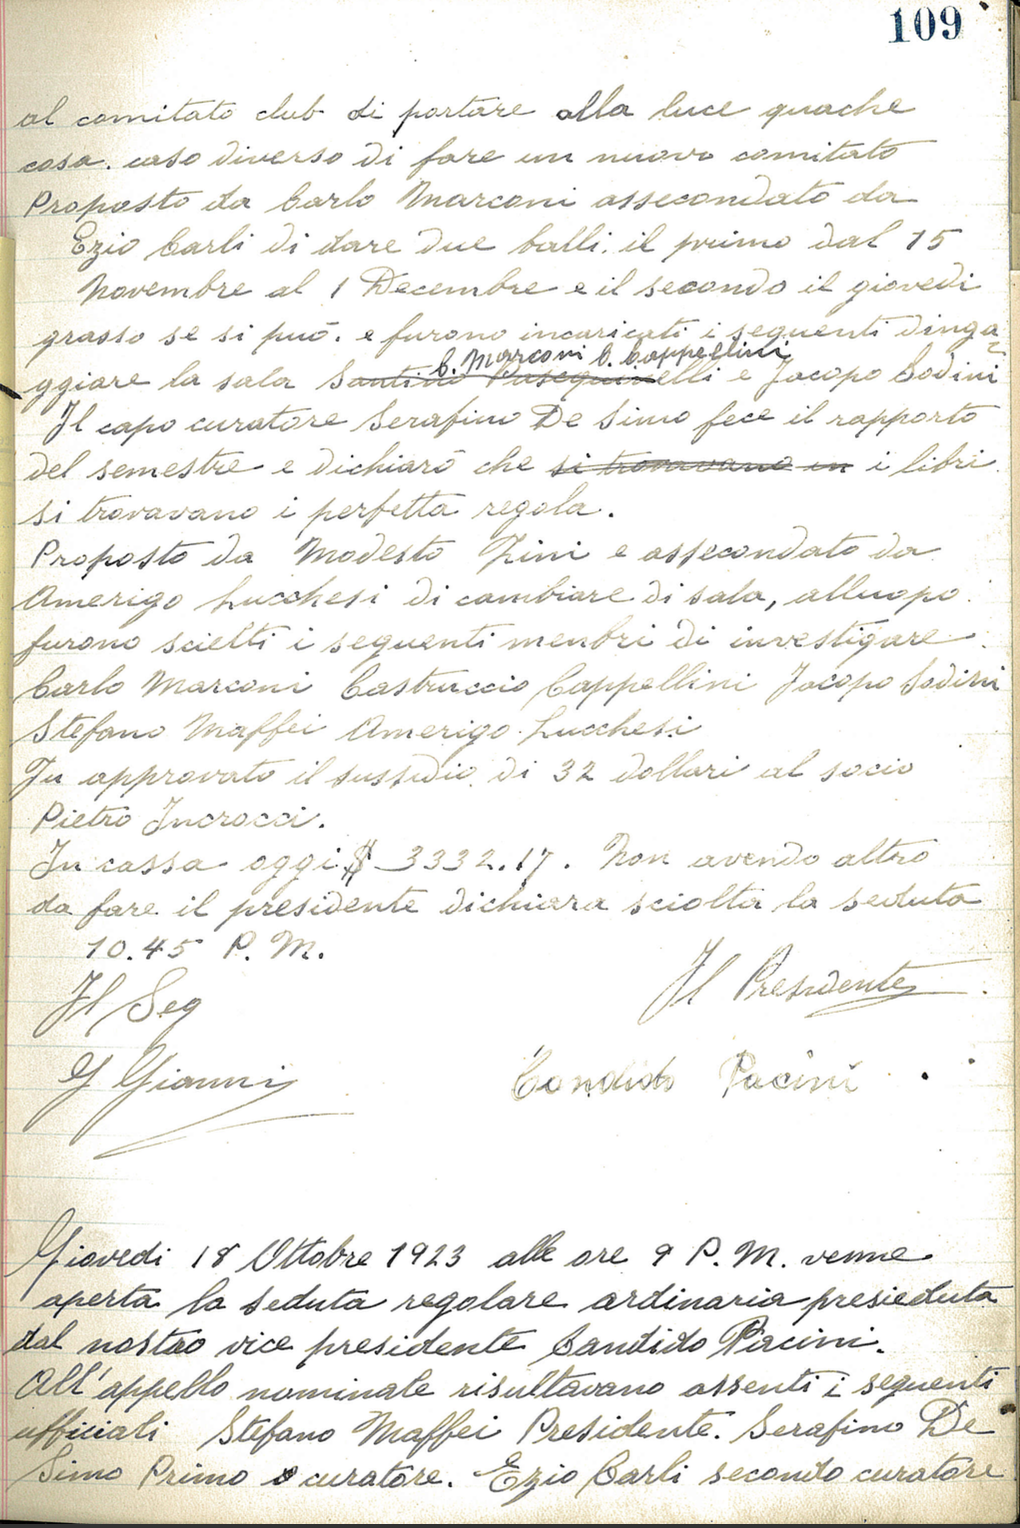 109
al comitato club di portare alla luce quache
cosa. caso diverso di fare un nuovo comitato
Proposto da Carlo Marconi assecondato da
Ezio Carli di dare due balli. il primo dal 15
Novembre al 1 Decembre e il secondo il giovedi
grasso se si può. e furono incaricati i seguenti dinga
C. Marconi C. Cappellini
ggiare la sala Santino Pasquinelli e Jacopo Sodini
Il capo curatore Serafino De Simo fece il rapporto
del semestre e dichiarò che si trovavano in i libri
si trovavano i perfetta regola.
Proposto da Modesto Zini e assecondato da
Amerigo Lucchesi di cambiare di sala, alluopo
furono scielti i seguenti menbri di investigare
Carlo Marconi Castruccio Cappellini Jacopo Sodini
Stefano Maffei Amerigo Lucchesi
Fu approvato il sussidio di 32 dollari al socio
Pietro Incrocci.
In cassa oggi $ 3332.17. Non avendo altro
da fare il presidente dichiara sciolta la seduta
10.45 P. M.
Il Presidente
Il Seg
G Gianni
Candido Pacini
Giovedi 18 Ottobre 1923 alle ore 9 P. M. venne
aperta la seduta regolare ordinaria presieduta
dal nostro vice presidente Candido Pacini.
All'appello nominale risultavano assenti i seguenti
ufficiali Stefano Maffei Presidente. Serafino De
Simo Primo curatore. Ezio Carli secondo curatore